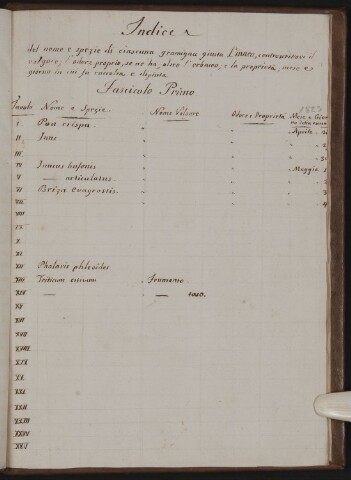 Indice
del nome e spezie di ciascuna gramigna giusta Linneo, contrescrittovi il
volgare, l'odore proprio, se ne ha, oltre l'erbaceo; e la proprietà, mese e
giorno in cui fu raccolta e dipinta
Fascicolo Primo.
1823
Tavole Nome e Spezie Nome Volgare Odore e Proprietà Mese e Gior
I. Poa crispa " " Aprile
II Junc " "
III " "
IV Juncus bufonius " " Maggio 1
V — articulatus " "
VI Briza eragrostis " "
VII " "
VIII
IX
X
XI
XII Phalaris phleoides
XIII Triticum " Frumento
XIV " — raso.
XV
XVI
XVII
XVIII
XIX
XX
XXI
XXII
XXIII
XXIV
XXV